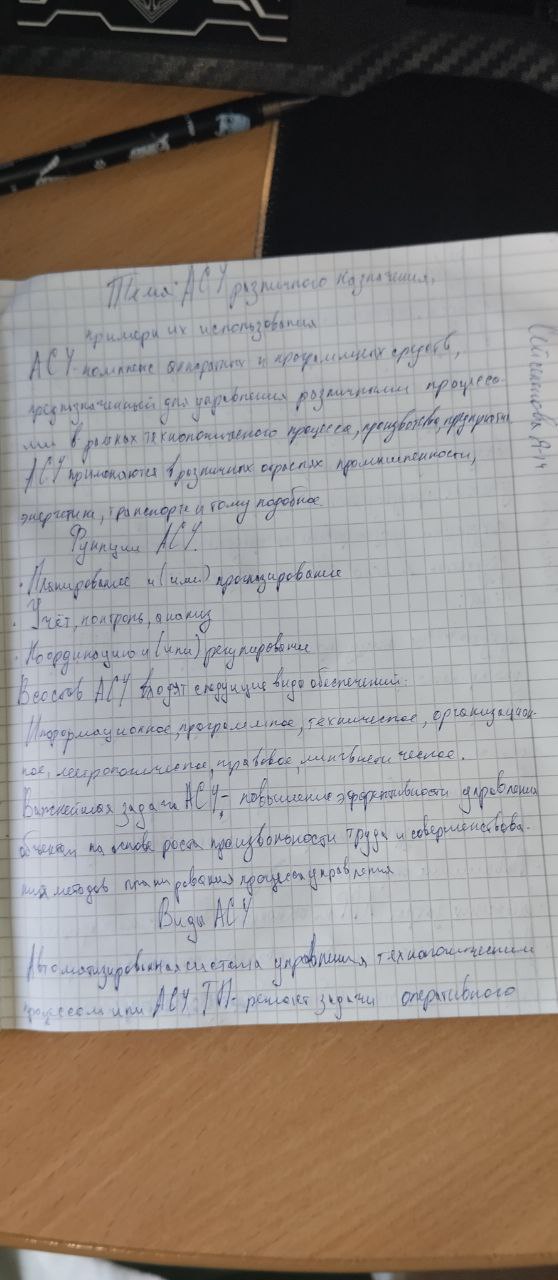 Тема: АСУ различного назначения,
примеры их использования
АСУ - комплекс аппаратных и программных средств,
предназначенный для управления различными процесса-
ми в рамках технологического процесса, производства, предприятия
АСУ применяются в различных отраслях промышленности,
энергетике, транспорте и тому подобное
Функции АСУ.
· Планирование и (или) прогнозирование
· Учёт, контроль, анализ
· Координацию и (или) регулирование
В состав АСУ входят следующие виды обеспечений:
Информационное, программное, техническое, организацион-
ное, метрологическое, правовое, лингвистическое.
Важнейшая задача АСУ - повышение эффективности управления
объектом на основе роста производности труда и совершенствова-
ния методов планирования процесса управления
Виды АСУ
Автоматизированная система управления технологическим
процессом или АСУ ТП - решает задачи оперативного